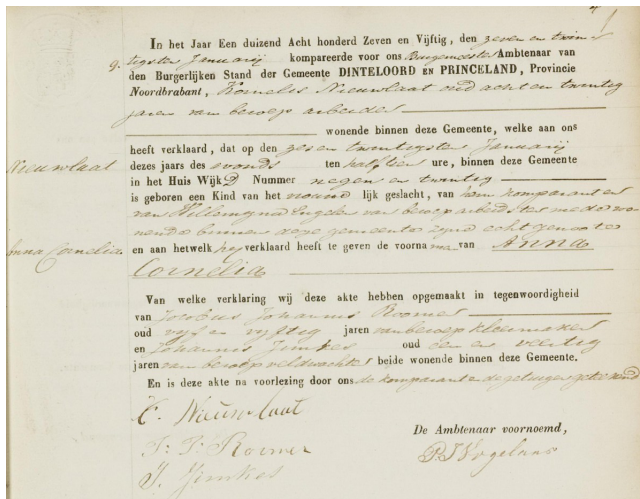 In het Jaar Een duizend Acht honderd Zeven en Vijftig, den zeven en twin-
9. tigsten Januarij kompareerde voor ons Burgemeester Ambtenaar van
den Burgerlijken Stand der Gemeente DINTELOORD EN PRINCELAND, Provincie
Noordbrabant, Kornelis Nieuwlaat oud acht en twintig
jaren van beroep arbeider
wonende binnen deze Gemeente, welke aan ons
heeft verklaard, dat op den zes en twintigsten Januarij
Nieuwlaat
dezes jaars des avonds ten half tien ure, binnen deze Gemeente
in het Huis Wijk D Nummer negen en twintig
is geboren een Kind van het vrouwelijk geslacht, van hem komparant en
van Willemijna Engelen van beroep arbeidster mede wo-
nende binnen deze gemeente zijne echtgenoote
Anna Cornelia
en aan hetwelk hij verklaard heeft te geven de voorna men van Anna
Cornelia
Van welke verklaring wij deze akte hebben opgemaakt in tegenwoordigheid
van Jacobus Johannis Roomer
oud vijf en vijftig jaren van beroep kleermaker
en Johannis Jimkes oud een en veertig
jaren van beroep veldwachter beide wonende binnen deze Gemeente.
En is deze akte na voorlezing door ons de komparant en de getuigen geteekend
C. Nieuwlaat
J: J: Roomer
J. Jimkes
De Ambtenaar voornoemd,
P. J. Vogelaar